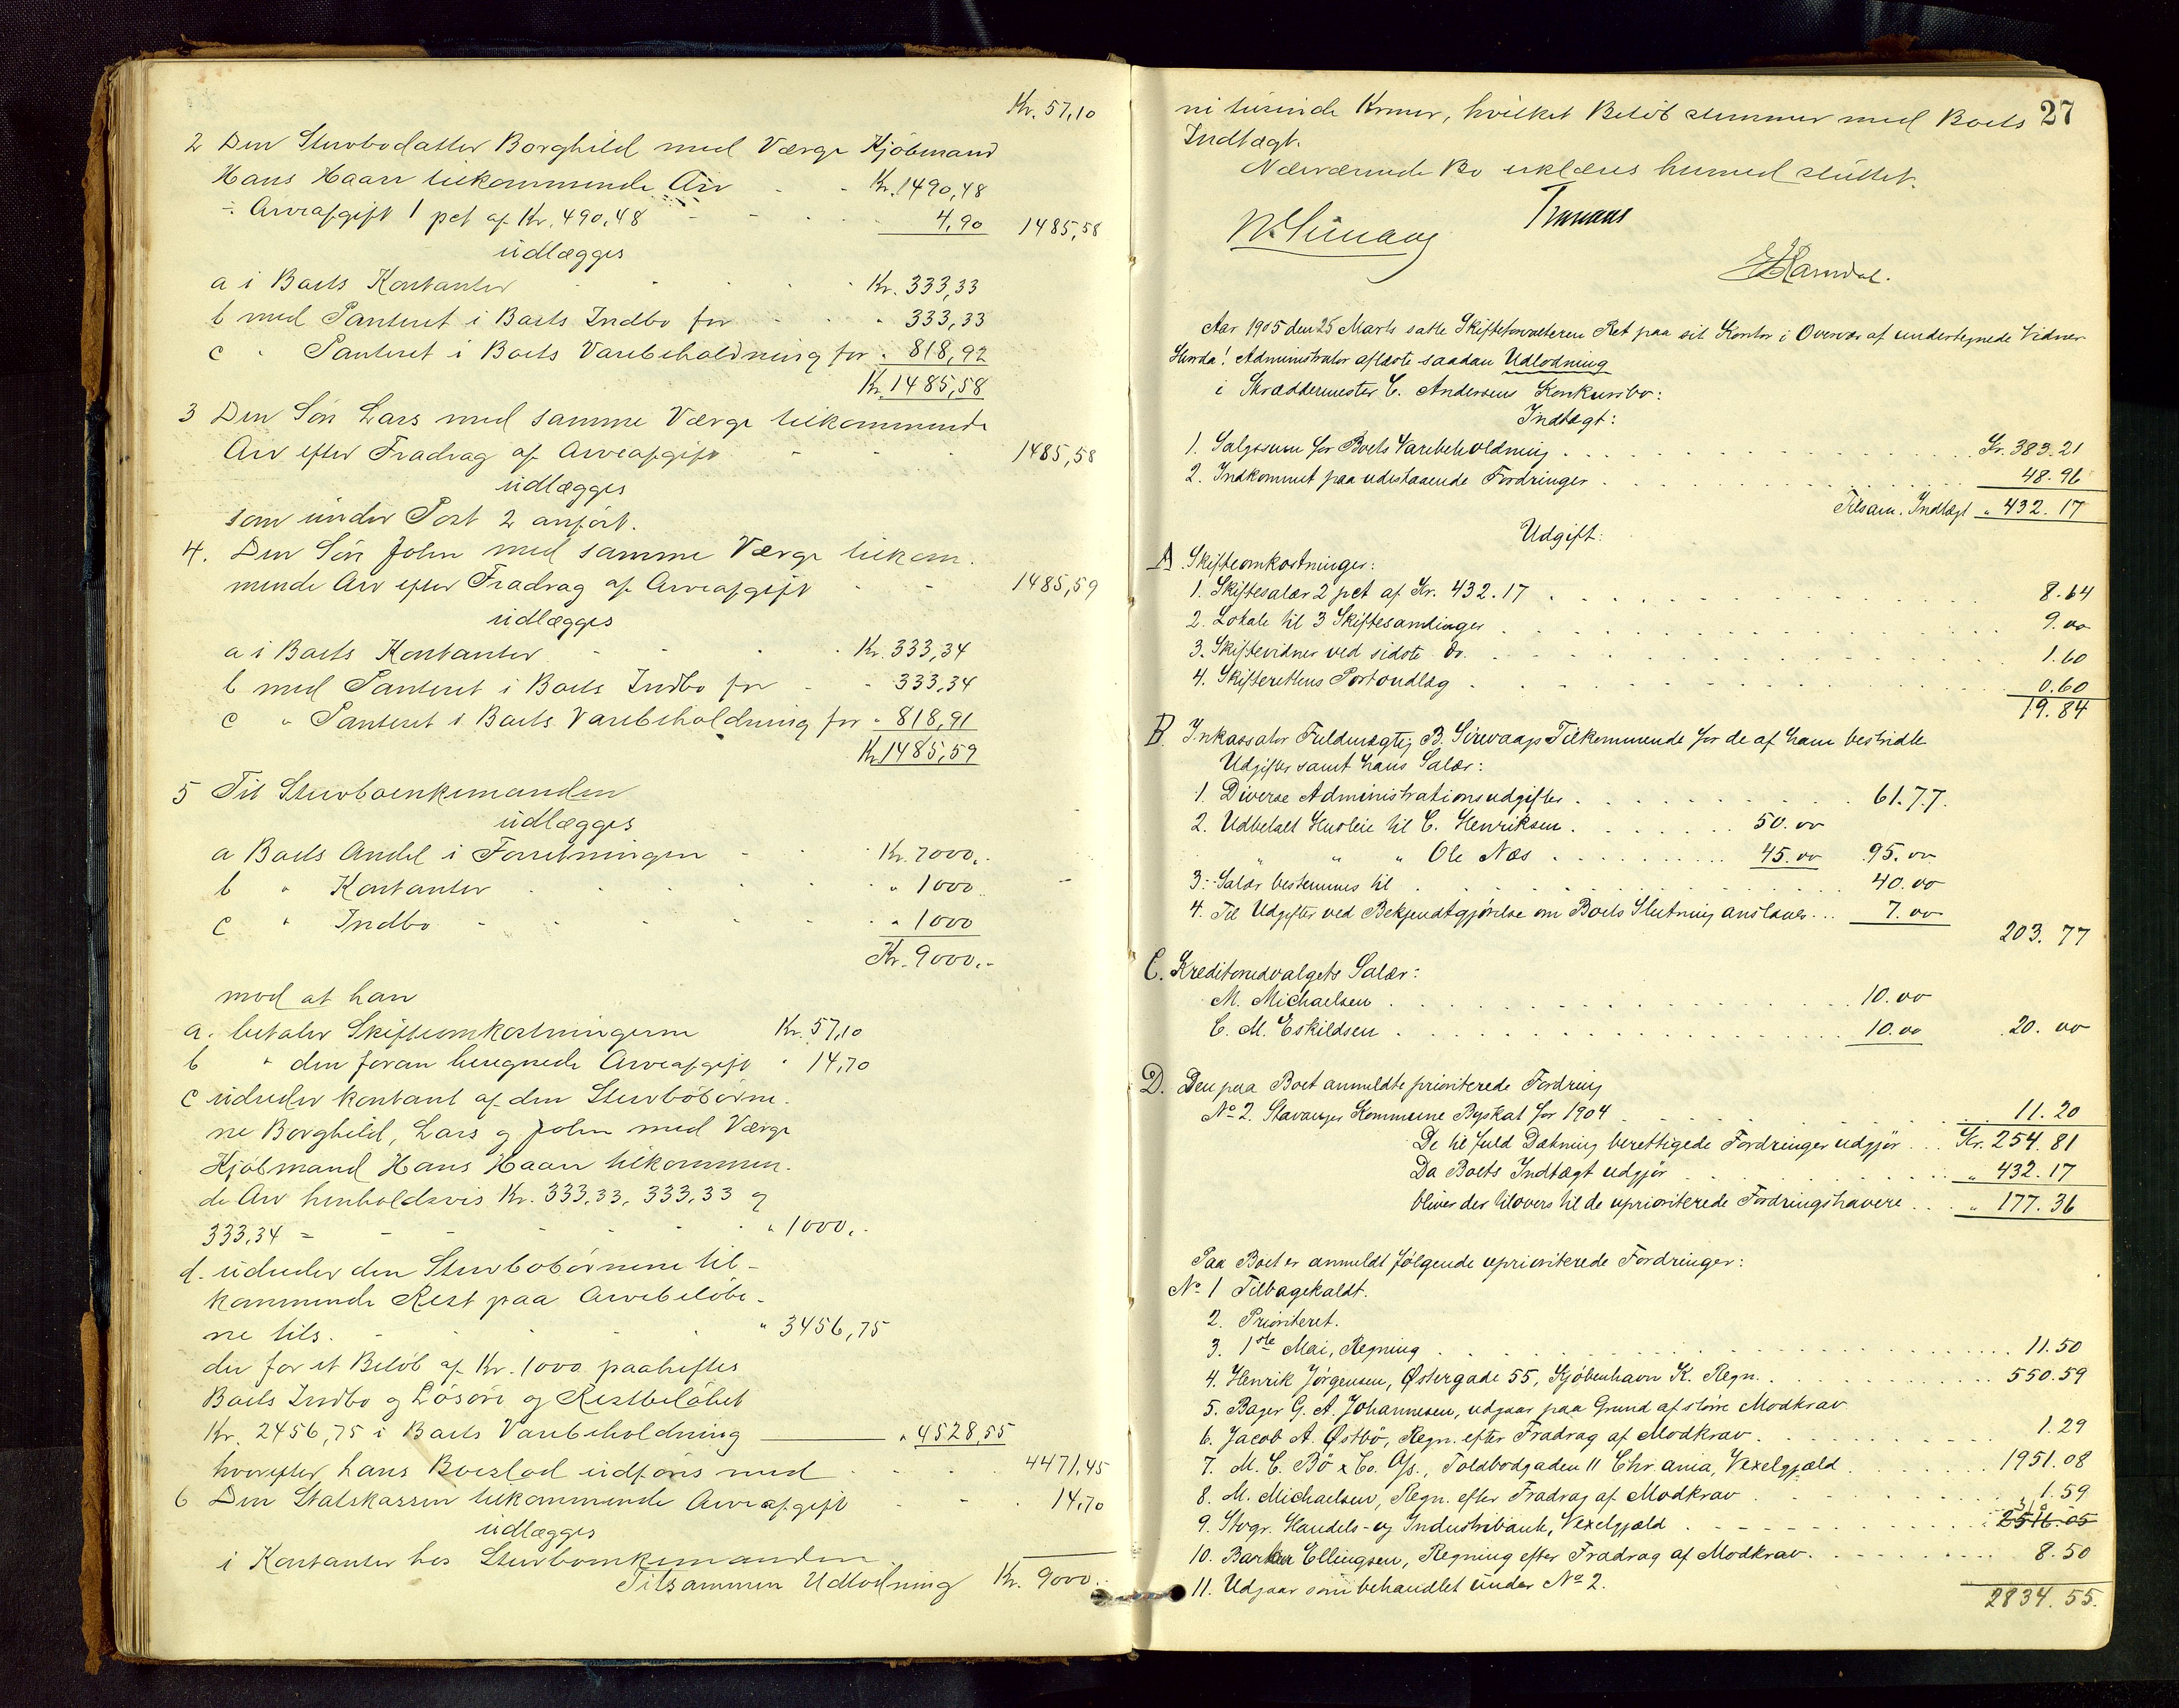 Kr. 57,10
2 Den Stervbodatter Borghild med Værge Kjöbmand
Hans Haarr tilkommende Arv - - Kr. 1490,48
÷ Arveafgift 1 pct af Kr. 490,48 - - - 4,90 1485,58
udlægges
a i Boets Kontanter - - - Kr. 333,33
b med Panteret i Boets Indbo for - - 333,33
c " Panteret i Boets Varebeholdning for " 818,92
Kr. 1485,58
3 Den Sön Lars med samme Værge tilkommende
Arv efter Fradrag af Arveafgift - - - 1485,58
udlægges
som under Post 2 anfört.
4. Den Sön John med samme Værge tilkom-
mende Arv efter Fradrag af Arveafgift - - 1485,59
udlægges
a i Boets Kontanter - - - Kr. 333,34
b med Panteret i Boets Indbo for - - 333,34
c " Panteret i Boets Varebeholdning for " 818,91
Kr. 1485,59
5 Til Stervboenkemanden
udlægges
a Boets Andel i Forretningen - - Kr. 7000,-
b " Kontanter - - - " 1000
c " Indbo - - - " 1000
Kr. 9000,-
mod at han
a. betaler Skifteomkostningerne Kr. 57,10
b " den foran beregnede Arveafgift " 14,70
c udreder kontant af den Stervbobörne-
ne Borghild, Lars og John med Værge
Kjöbmand Hans Haarr tilkommen-
de Arv henholdsvis Kr. 333,33, 333,33 og
333,34 - - - - " 1000,-
d. udreder den Stervbobörnene til-
kommende Rest paa Arvebelöbe-
ne tils. - - - " 3456,75
der for et Belöb af Kr. 1000 paaheftes
Boets Indbo og Lösöre og Restbelöbet
Kr. 2456,75 i Boets Varebeholdning " 4528,55
hvorefter hans Boeslod udföres med - - 4471,45
6 Den Statskassen tilkommende Arveafgift - - 14,70
udlægges
i Kontanter hos Stervboenkemanden.
Tilsammen Udlodning Kr. 9000.-
27
ni tusinde Kroner, hvilket Belöb stemmer med Boets
Indtægt.
Nærværende Bo erklæres hermed sluttet.
Aar 1905 den 25 Marts satte Skifteforvalteren Ret paa sit Kontor i Overvær af undertegnede Vidner
Hvorda! Administrator aflæste saadan Udlodning
i Skræddermester C. Andersens Konkursbo:
Indtægt:
1. Salgssum for Boets Varebeholdning . . . Kr. 383.21
2. Indkommet paa udestaaende Fordringer . . . 48.96
Tilsam. Indtægt " 432.17
Udgift:
A. Skifteomkostninger:
1. Skiftesalær 2 pct af Kr. 432.17 . . . 8.64
2. Lokale til 3 Skiftesamlinger . . . 9.00
3. Skiftevidner ved sidste Do. . . . 1.60
4. Skifterettens Portoudlæg . . . 0.60
19.84
B. Inkassator Fuldmægtig B. Sirevaags Tilkommende for de af ham bestridte
Udgifter samt hans Salær:
1. Diverse Administrationsudgifter . . . 61.77.
2. Udbetalt Husleie til C. Henriksen . . . 50.00
" " " Ole Næs . . . 45.00 95.00
3. Salær bestemmes til . . . 40.00
4. Til Udgifter ved Bekjendtgjörelse om Boets Slutning anslaaes . . . 7.00
203.77
C. Kreditorudvalgets Salær:
M. Michaelsen . . . 10.00
C. M. Eskildsen . . . 10.00 20.00
D. Den paa Boet anmeldte prioriterede Fordring
No 2. Stavanger Kommune Byskat for 1904 . . . 11.20
De til fuld Dækning berettigede Fordringer udgjör . . . Kr. 254.81
Da Boets Indtægt udgjör . . . " 432.17
bliver der tilovers til de uprioriterede Fordringshavere . . . " 177.36
Paa Boet er anmeldt fölgende uprioriterede Fordringer:
No 1 Tilbagekaldt.
2. Prioriteret.
3. 1ste Mai, Regning . . . 11.50
4. Henrik Jörgensen, Østergade 55, Kjöbenhavn K. Regn. . . . 550.59
5. Bager G. A. Johannesen, udgaar paa Grund af större Modkrav
6. Jacob A. Østbö, Regn. efter Fradrag af Modkrav . . . 1.29
7. M. C. Bö & Co. A/s., Toldbodgaden 11 Chr.ania, Vexelgjæld . . . 1951.08
8. M. Michaelsen, Regn. efter Fradrag af Modkrav . . . 1.59
9. Stvgr. Handels- og Industribank, Vexelgjæld . . . 310
10. Ellingsen, Regning efter Fradrag af Modkrav . . . 8.50
11. Udgaar som behandlet under No 2.
2834.55.